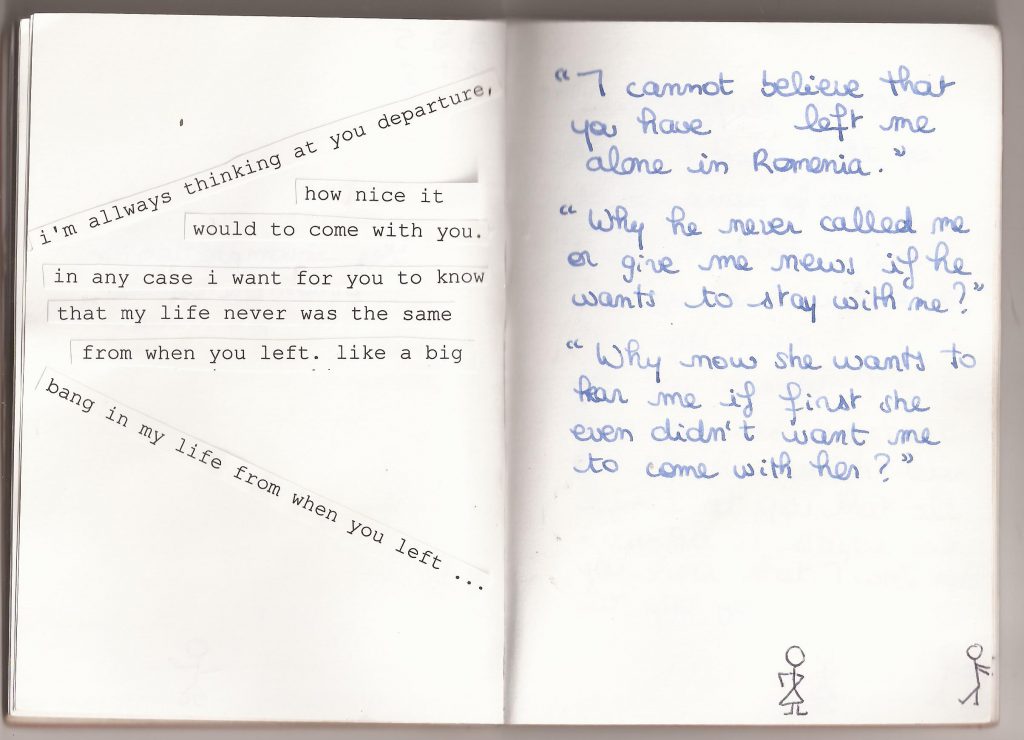 i'm allways thinking at you departure,
how nice it
would to come with you.
in any case i want for you to know
that my life never was the same
from when you left. like a big
bang in my life from when you left ...
"I cannot believe that
you have left me
alone in Romenia."
"Why he never called me
or give me news if he
wants to stay with me?"
"Why now she wants to
hear me if first she
even didn't want me
to come with her?"